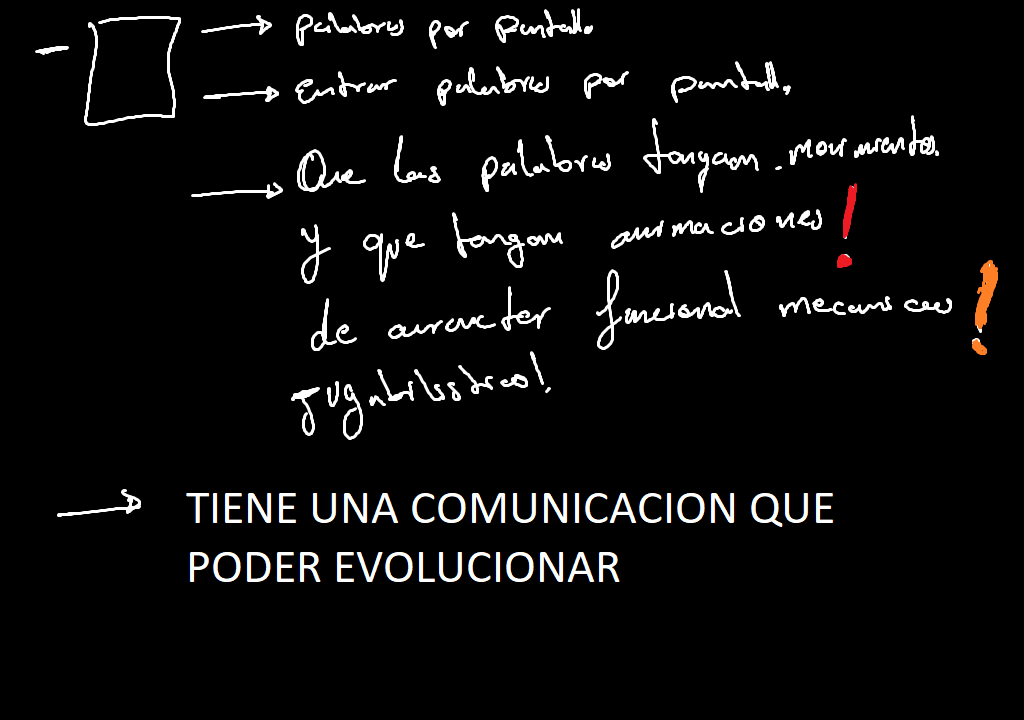 Palabras por pantalla
Entrar palabras por pantalla.
Que las palabras tengan movimiento.
y que tengan animaciones!
de caracter funcional mecanicas!
Jugabilistico!.
TIENE UNA COMUNICACION QUE
PODER EVOLUCIONAR